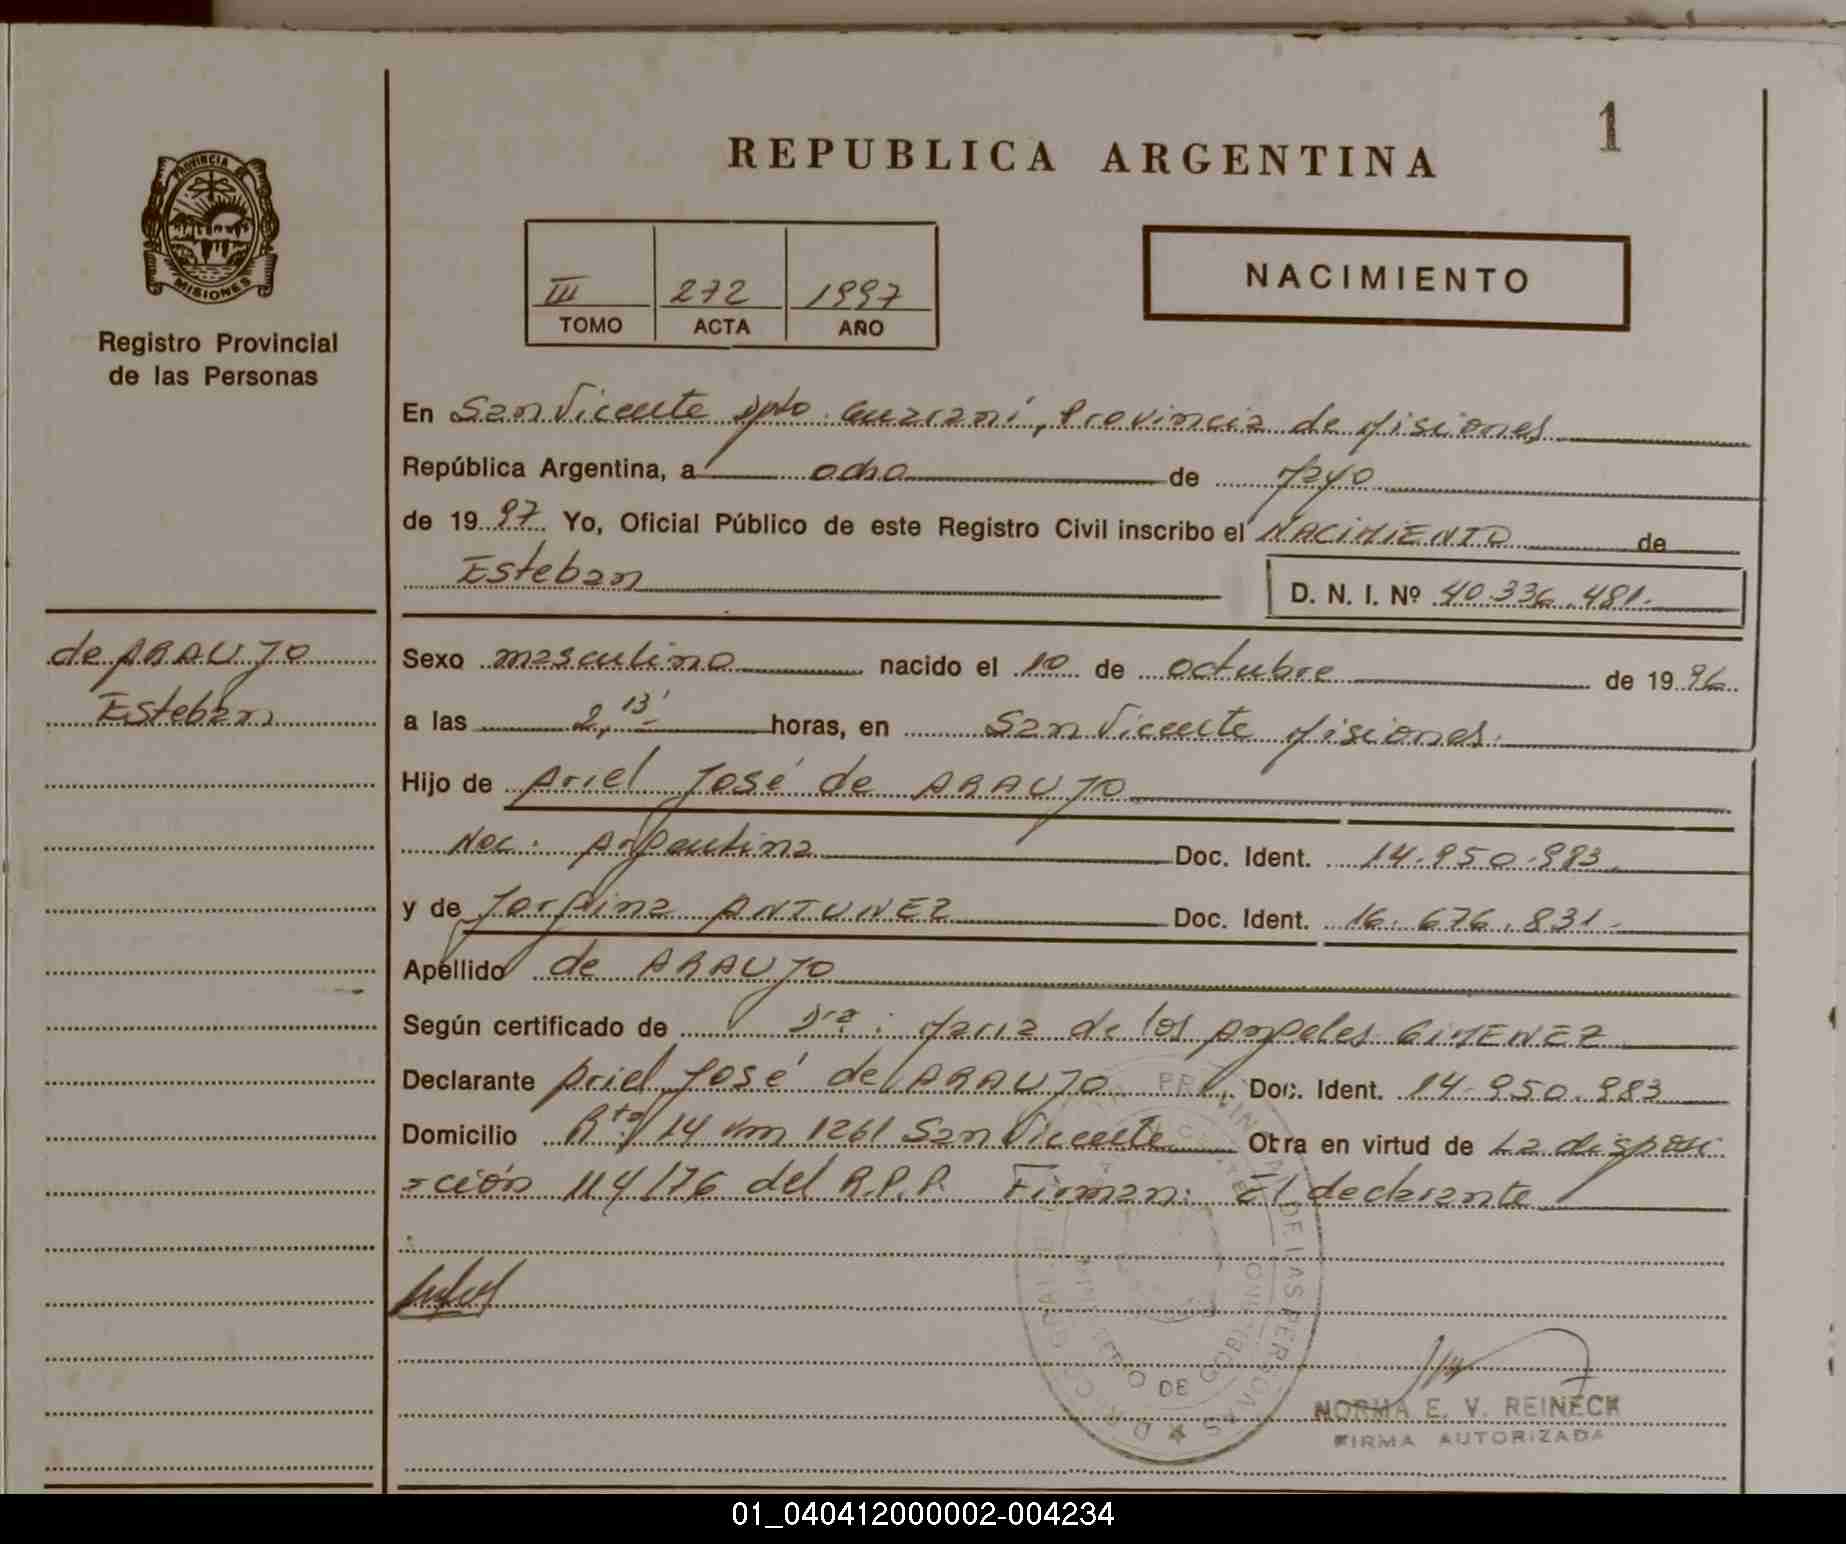 1
REPUBLICA ARGENTINA
PROVINCIA
MISIONES
Registro Provincial
de las Personas
III 272 1997
TOMO ACTA AÑO
NACIMIENTO
En San Vicente Dpto. Guaraní, Provincia de Misiones
República Argentina, a ocho de Mayo
de 1997 Yo, Oficial Público de este Registro Civil inscribo el NACIMIENTO de
Esteban
D. N. I. Nº 40.336.481.
de ARAUJO
Esteban
Sexo masculino nacido el 10 de octubre de 1996
a las 2,13' horas, en San Vicente Misiones.
Hijo de Ariel José de ARAUJO
Nac. Argentina Doc. Ident. 14.950.983
y de ANTUNEZ Doc. Ident. 16.676.831.
Apellido de ARAUJO
Según certificado de Dra. Maria de los Angeles GIMENEZ
Declarante Ariel José de ARAUJO Doc. Ident. 14.950.983
Domicilio Rta 14 km 1261 San Vicente Otra en virtud de La disposi
ción 114/76 del R.P.P. Firman: El declarante
NORMA E. V. REINECK
FIRMA AUTORIZADA
DE LAS PERSONAS
MINISTERIO DE GOBIERNO
01_040412000002-004234